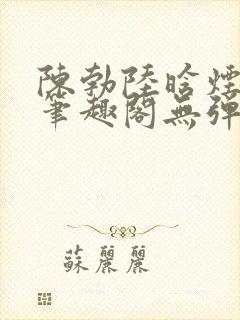 陳勃陸晗煙
筆趣閣無彈
蘇麗麗